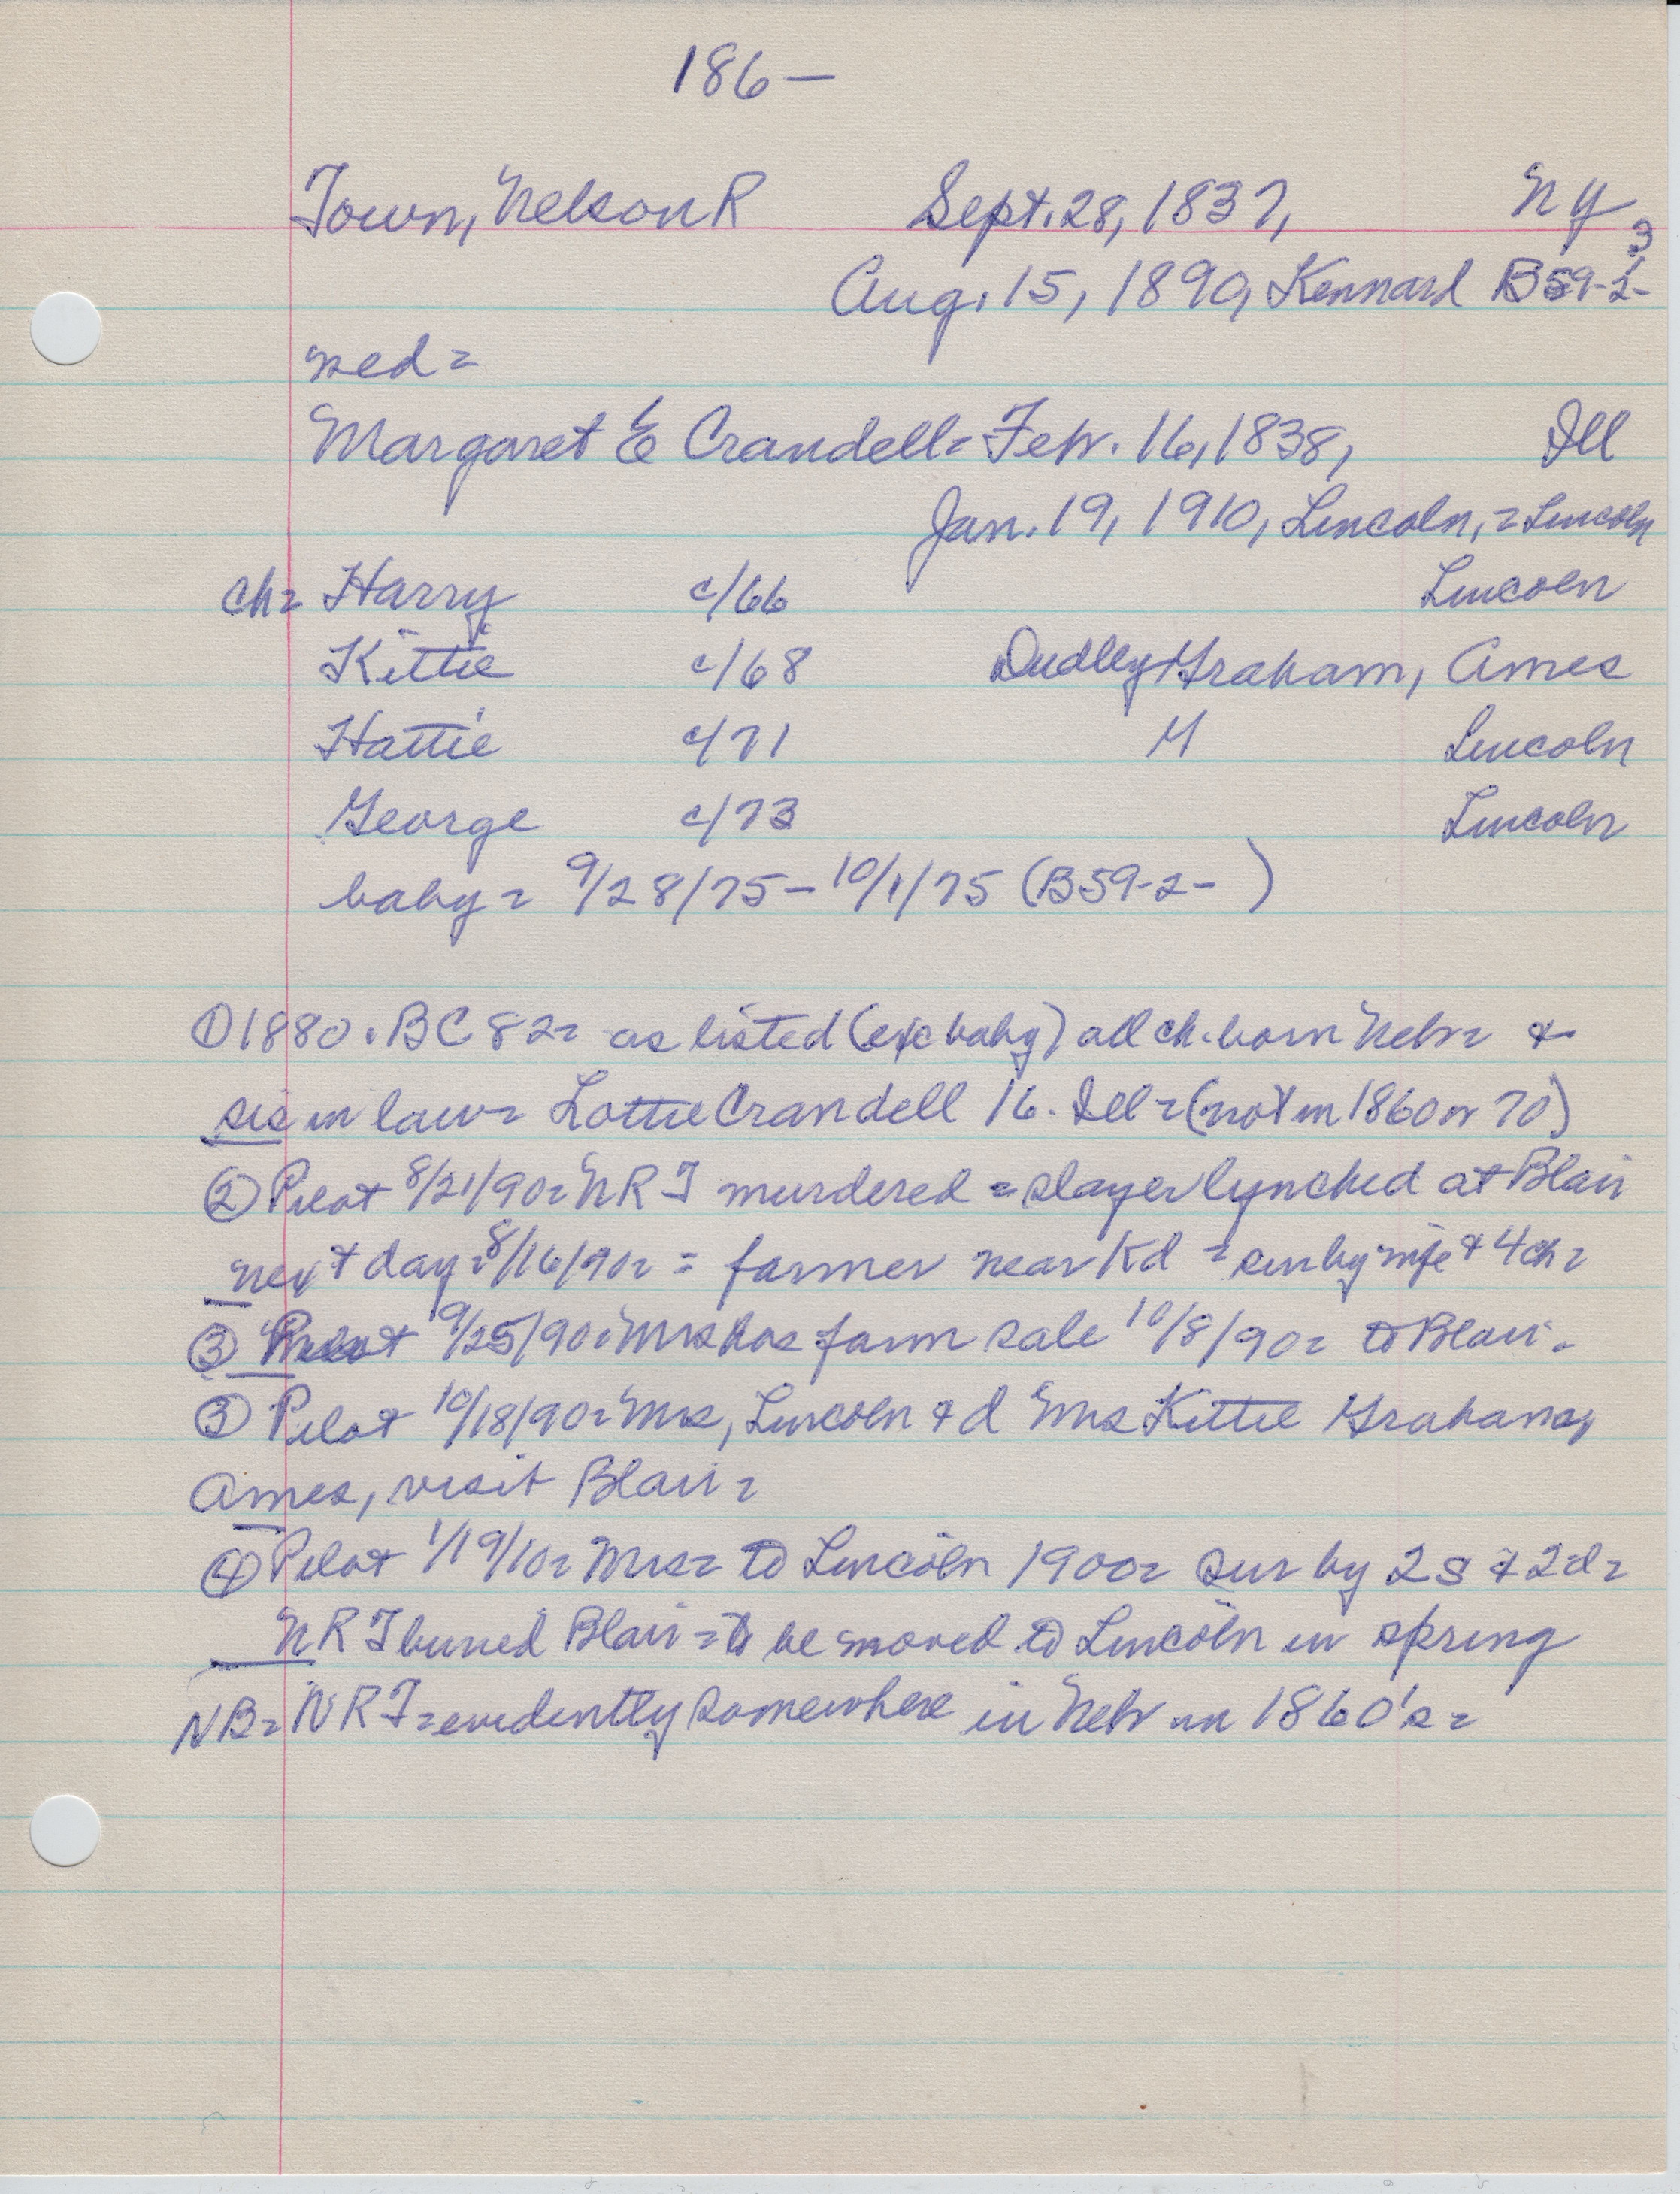 186—
Town, Nelson R Sept. 28, 1837, NY
3
Aug. 15, 1890, Kennard B59-2-
med =
Margaret E Crandell = Febr. 16, 1838, Ill
Jan. 19, 1910, Lincoln, = Lincoln
ch = Harry c/66 Lincoln
Kittie c/68 Dudley Graham, Ames
Hattie c/71 M Lincoln
George c/73 Lincoln
baby = 9/28/75 – 10/1/75 (B59-2- )
① 1880. BC 82 = as listed (exc baby) all ch. born Nebr = &
sis in law = Lottie Crandell 16. Ill = (not in 1860 or 70)
② Pilot 8/21/90 = NRT murdered = slayer lynched at Blair
next day = 8/16/90 = = farmer near Kd = sur by wife & 4 ch =
③ Pilot 9/25/90 = Mrs has farm sale 10/8/90 = to Blair =
③ Pilot 10/18/90 = Mrs, Lincoln & d Mrs Kittie Graham,
Ames, visit Blair =
④ Pilot 1/19/10 = Mrs = to Lincoln 1900 = sur by 2 s & 2 d =
NRT buried Blair = to be moved to Lincoln in spring
NB = NRT = evidently somewhere in Nebr in 1860's =